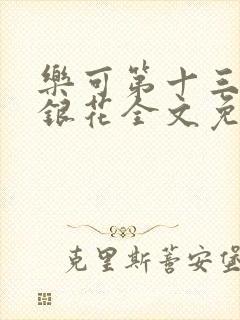 樂可第十三
銀花全文免
克里斯蒈安堡